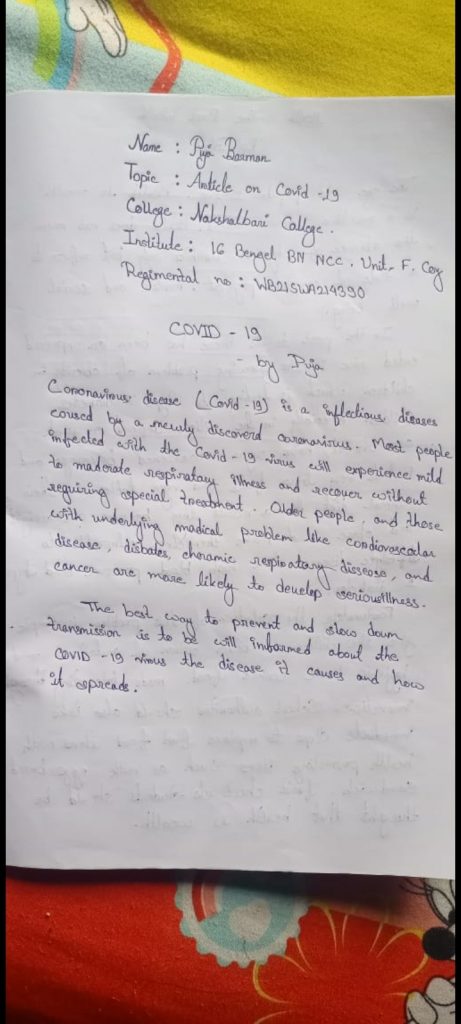 Name : Puja Barman
Topic : Article on Covid -19
College : Nakshalbari College.
Institute : 16 Bengel BN NCC. Unit- F. Coy
Regimental no : WB21SWA214390
COVID - 19
- by Puja
Coronavirus disease (Covid -19) is a inflectious diseases
coused by a newly discoverd coronavirus. Most people
infected with the Covid -19 virus will experience mild
to maderate respiratary illness and recover without
requiring special treatment. Older people, and those
with underlying madical problem like cardiovascular
disease, diabates, choramic respiratary dissease, and
cancer are more likely to develop seriousillness.
The best way to prevent and slow down
transmission is to be will informed about the
COVID -19 virus the disease it causes and how
it spreads.